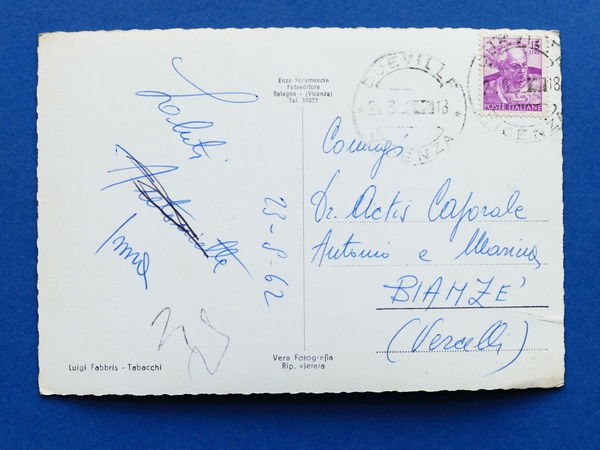 Enzo Scremoncin
Fotoeditore
Solagna - (Vicenza)
Tel. 98022
Saluti
Antonietta
Irma
23-8-62
Luigi Fabbris - Tabacchi
Vera Fotografia
Rip. vietata
DUEVILLE
VICENZA
15
POSTE ITALIANE
Coniugi
Dr. Actis Caporale
Antonio e Marina
BIANZE'
(Vercelli)